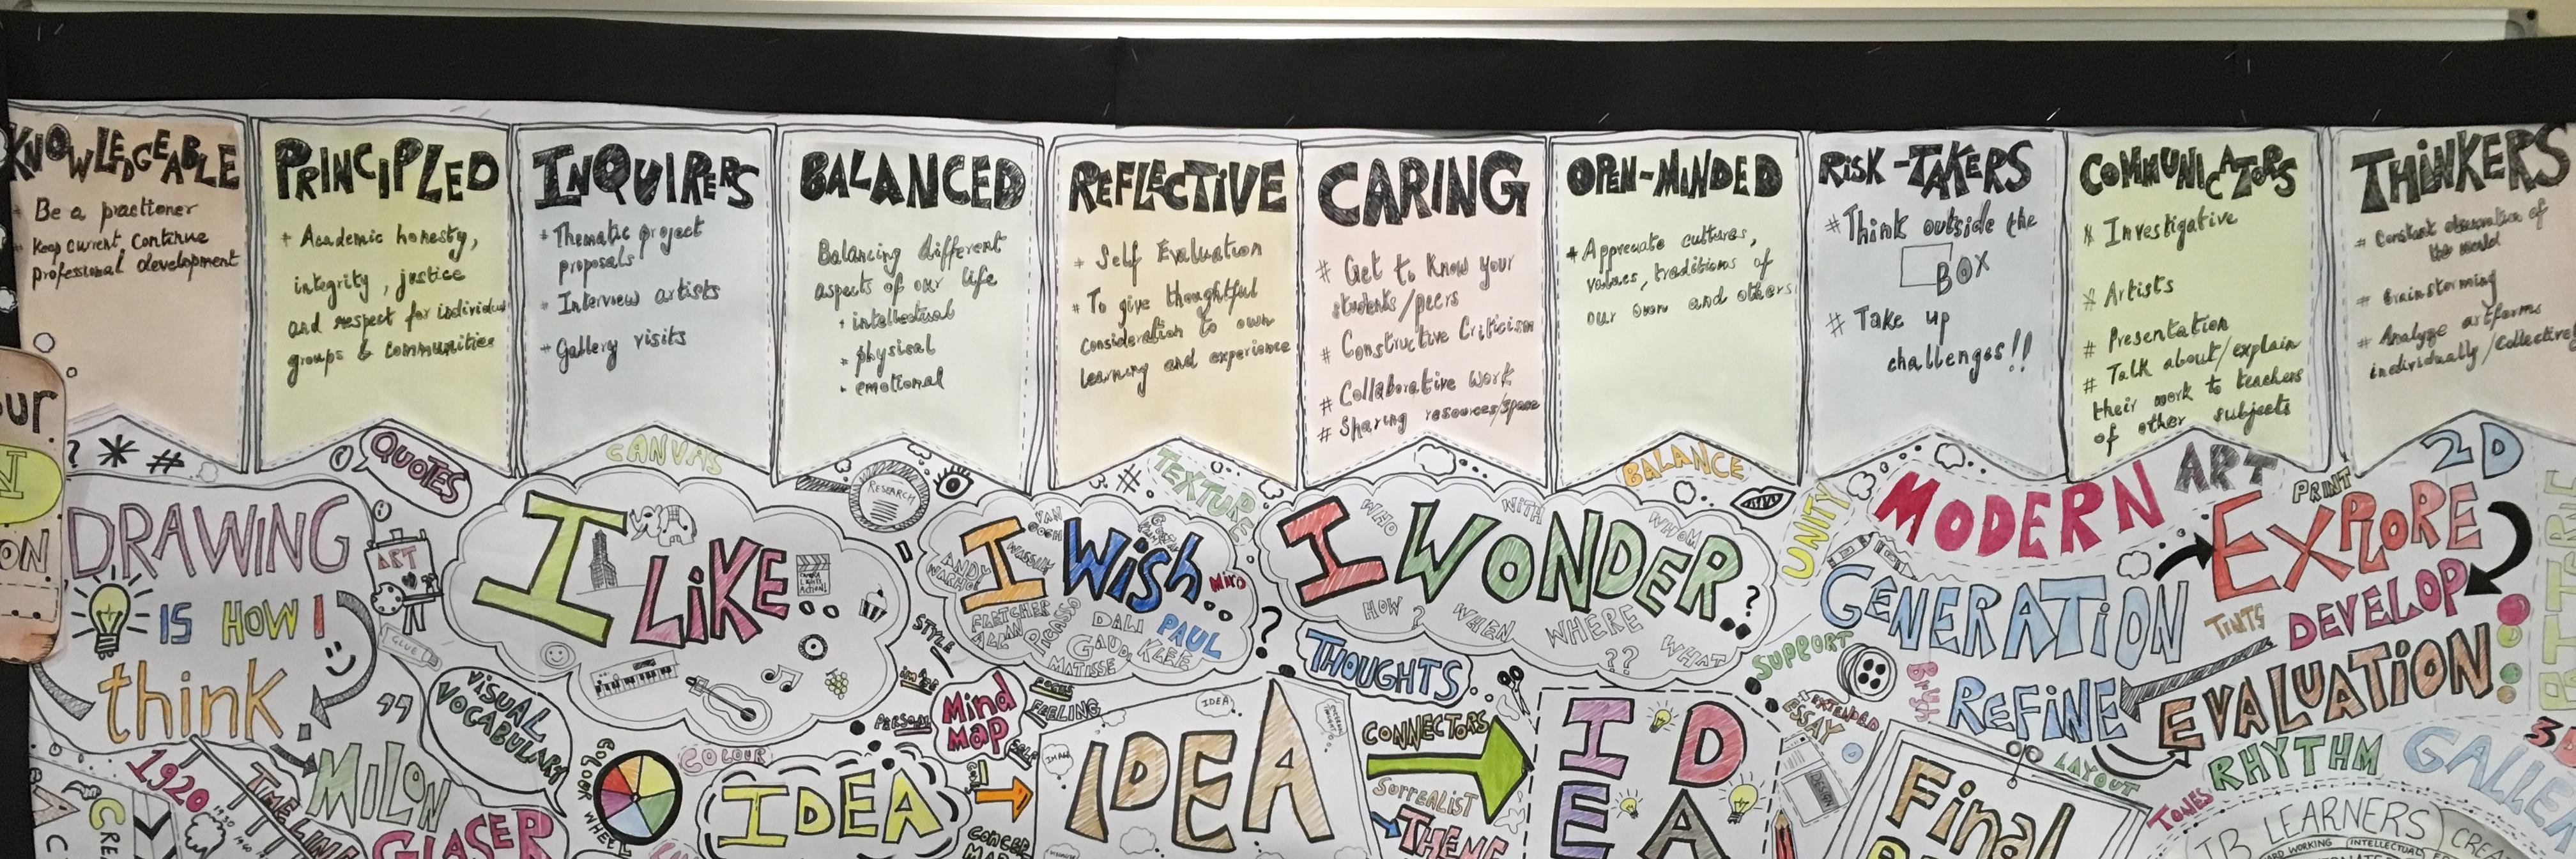 KNOWLEDGEABLE
Be a practioner
Keep current, Continue
professional development
PRINCIPLED
+ Academic honesty,
integrity, justice
and respect for individual
groups & communities
INQUIRERS
+ Thematic project
proposals
+ Interview artists
+ Gallery visits
BALANCED
Balancing different
aspects of our life
• intellectual
• physical
• emotional
REFLECTIVE
+ Self Evaluation
# To give thoughtful
consideration to own
learning and experience
CARING
# Get to know your
students/peers
# Constructive Criticism
# Collaborative Work
# Sharing resources/space
OPEN-MINDED
* Appreciate cultures,
values, traditions of
our own and others
RISK-TAKERS
# Think outside the
BOX
# Take up
challenges!!
COMMUNICATORS
# Investigative
# Artists
# Presentation
# Talk about/explain
their work to teachers
of other subjects
THINKERS
# Constant observation of
the world
# Brainstorming
# Analyze artforms
individually/Collective
? * #
QUOTES
CANVAS
RESEARCH
#
TEXTURE
BALANCE
UNITY
MODERN
ART
PRINT
2D
DRAWING
IS HOW I
think
ART
GLUE
I LIKE
I WISH
VAN
GOGH
WASSILY
ANDY
WARHOL
MIRO
FLETCHER
ALLAN
PICASSO
DALI
GAUDI
MATISSE
PAUL
KLEE
I WONDER
WHO
WITH
WHOM
HOW?
WHEN
WHERE
??
WHAT
?
?
GENERATION
EXPLORE
TINTS
DEVELOP
SUPPORT
REFINE
EVALUATION
EXTENDED
ESSAY
DESIGN
RHYTHM
LAYOUT
TONES
GALLER
3D
VISUAL
VOCABULARY
1920
TIME LINE
MILON
GLASER
COLOUR WHEEL
COLOUR
STYLE
PERSONAL
Mind
Map
FOCUS
FEELING
SELF
THOUGHTS
IDEA
IDEA
IDEA
IDEA
CONNECTORS
SURREALIST
THEME
Final
IB LEARNERS
HARD WORKING
INTELLECTUAL